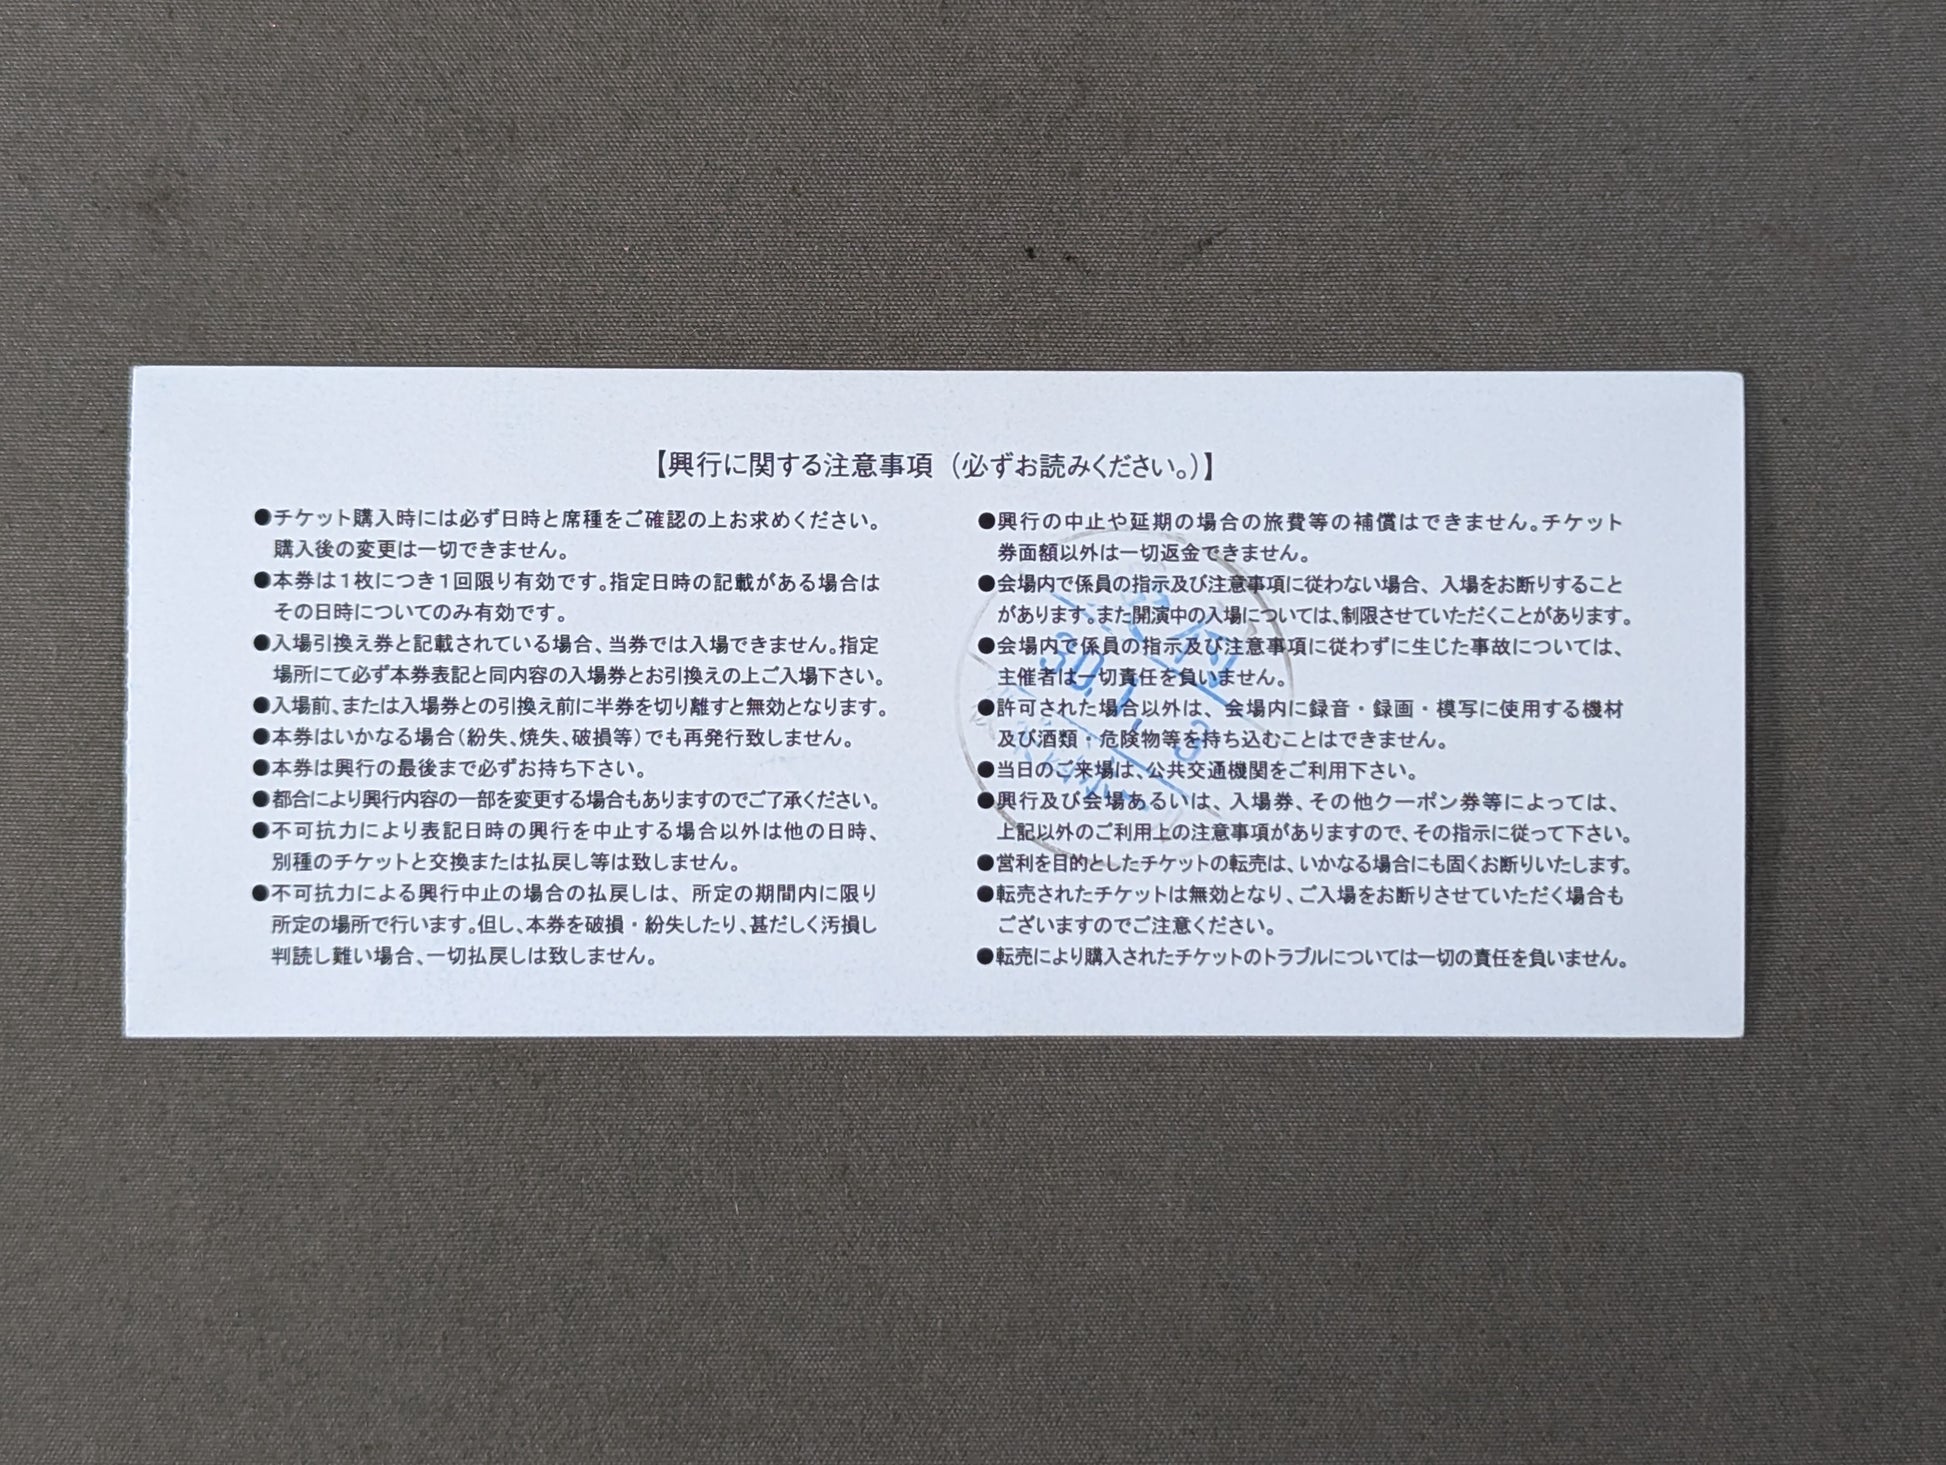 【興行に関する注意事項（必ずお読みください。）】
●チケット購入時には必ず日時と席種をご確認の上お求めください。
購入後の変更は一切できません。
●本券は1枚につき1回限り有効です。指定日時の記載がある場合は
その日時についてのみ有効です。
●入場引換え券と記載されている場合、当券では入場できません。指定
場所にて必ず本券表記と同内容の入場券とお引換えの上ご入場下さい。
●入場前、または入場券との引換え前に半券を切り離すと無効となります。
●本券はいかなる場合（紛失、焼失、破損等）でも再発行致しません。
●本券は興行の最後まで必ずお持ち下さい。
●都合により興行内容の一部を変更する場合もありますのでご了承ください。
●不可抗力により表記日時の興行を中止する場合以外は他の日時、
別種のチケットと交換または払戻し等は致しません。
●不可抗力による興行中止の場合の払戻しは、所定の期間内に限り
所定の場所で行います。但し、本券を破損・紛失したり、甚だしく汚損し
判読し難い場合、一切払戻しは致しません。
●興行の中止や延期の場合の旅費等の補償はできません。チケット
券面額以外は一切返金できません。
●会場内で係員の指示及び注意事項に従わない場合、入場をお断りすること
があります。また開演中の入場については、制限させていただくことがあります。
●会場内で係員の指示及び注意事項に従わずに生じた事故については、
主催者は一切責任を負いません。
●許可された場合以外は、会場内に録音・録画・模写に使用する機材
及び酒類・危険物等を持ち込むことはできません。
●当日のご来場は、公共交通機関をご利用下さい。
●興行及び会場あるいは、入場券、その他クーポン券等によっては、
上記以外のご利用上の注意事項がありますので、その指示に従って下さい。
●営利を目的としたチケットの転売は、いかなる場合にも固くお断りいたします。
●転売されたチケットは無効となり、ご入場をお断りさせていただく場合も
ございますのでご注意ください。
●転売により購入されたチケットのトラブルについては一切の責任を負いません。
30.1.3